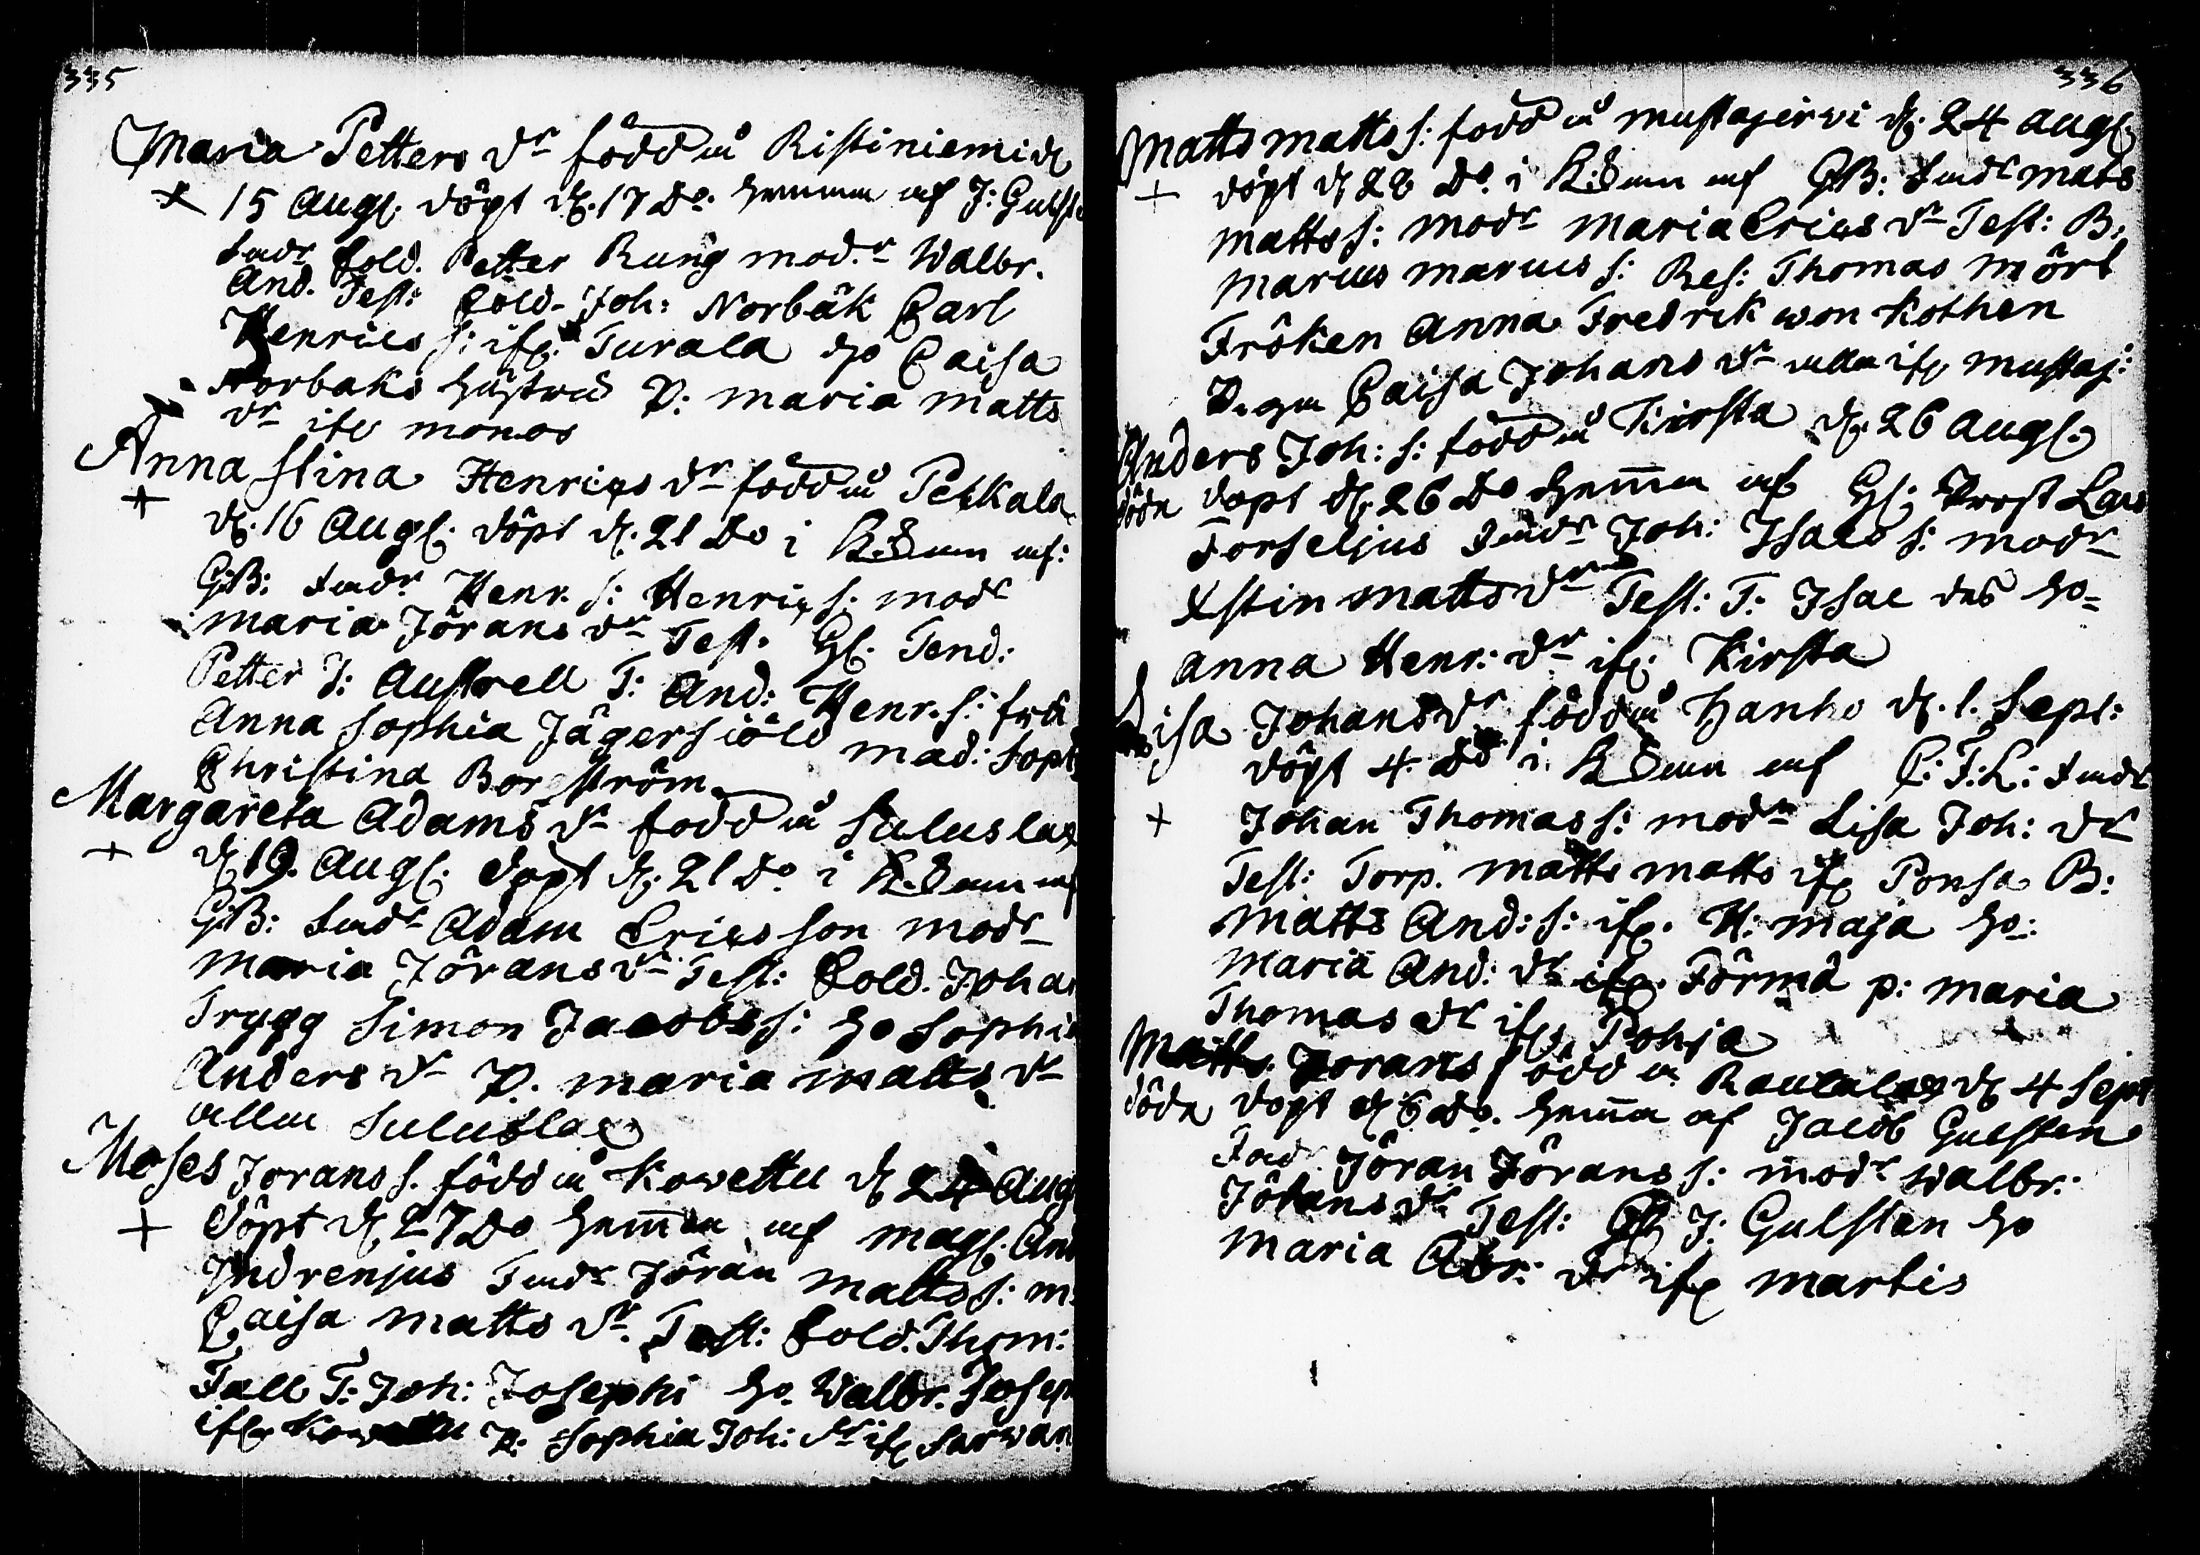 335
Maria Petters dr född i Ristiniemi d.
15 Augs. döpt d. 17 Do. hemma af J: Gulst
Fadr Sold. Petter Rung modr Walbr.
And. Test: Sold. Joh: Norbäk Carl
Henrics s: ifr. Turala ho Caisa
Norbaks hustru P: Maria Matts
dr ifr monos
Anna Stina Henrics dr född i Pekkala
d. 16 Augs. döpt d. 21 Do i af:
GB: Fadr Henr. s: Henrics s: modr
Maria Jörans dr Test.
Petter J: Austrell T: And: Henr. s: fru
Anna Sophia Jägersiöld mad: Soph
Christina Borgström
Margareta Adams dr född i Suluslax
d. 19. Augs. döpt d. 21 Do i af
GB: Fadr Adam Ericsson modr
Maria Jörans dr Test: Sold. Joha
Trygg Simon Jacobs s: ho Sophia
Anders dr P. Maria Matts dr
alla Suluslax
Moses Jorans s. född i Kowettu d. 24 Augs
döpt d. 27 Do hemma af Mags. And
Indrenius Fadr Jöran Matts s: m.
Caisa Matts dr. Test: Sold. Thom:
Fall T: Joh: Josephi ho. Walbr. Joseph
ifr Kowettu P. Sophia Joh: dr ifr Sarwan
336
Matts Matts s: född i Mustajerwi d. 24 Augs.
döpt d 28 Do. i af GB: Fadr Mats
Matts s: modr Maria Erics dr Test: B:
Marcus Marcus s: Res: Thomas Mört
Fröken Anna Fredrik won Kothen
Caisa Johans dr alla ifr Mustaj:
Anders Joh: s: född i Kirsta d. 26 Augs.
döda döpt d. 26 Do hemma af Prost Lars
Forseljus Fadr Joh: Isacs s: modr
Xstin Matts dr Test: T: Isac ho
Anna Henr: dr ifr. Kirsta
Lisa Johans dr född i Hanho d. 1. Sept:
döpt 4. Do i af C: F: L: Fadr
Johan Thomas s: modr Lisa Joh: dr
Test: Torp. Matts Matts ifr Ponsa B:
Matts And: s: ifr. K: maja ho:
Maria And: dr ifr. Förmå p: Maria
Thomas dr ifr Pohja
Matts Jorans s född i Rautalax d 4 Sept
döda döpt d. 6 Do. hemma af Jacob Gulsten
Fadr Jöran Jörans s: modr Walbr:
Johans dr Test: J: Gulsten ho
Maria Abr: dr ifr Martis